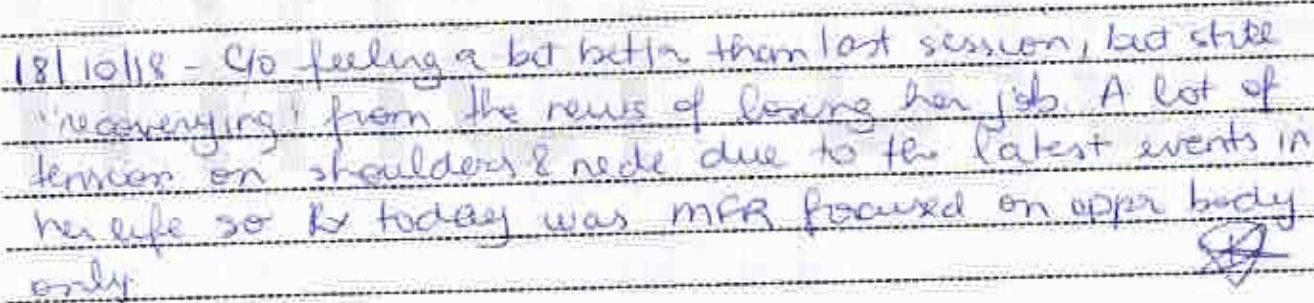 18/10/18 - C/o feeling a bit better than last session, but still
"recoverying" from the news of losing her job. A lot of
tension on shoulders & neck due to the latest events in
her life so Rx today was MFR focused on uppr body
only.